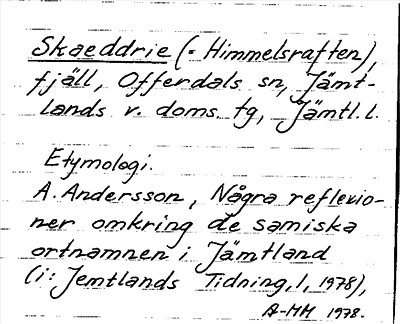 Skaeddrie (= Himmelsraften),
fjäll, Offerdals sn, Jämt-
lands v. doms. tg, Jämtl. l.
Etymologi.
A. Andersson, Några reflexio-
ner omkring de samiska
ortnamnen i Jämtland
(i: Jemtlands Tidning, 1, 1978),
A-MM 1978.